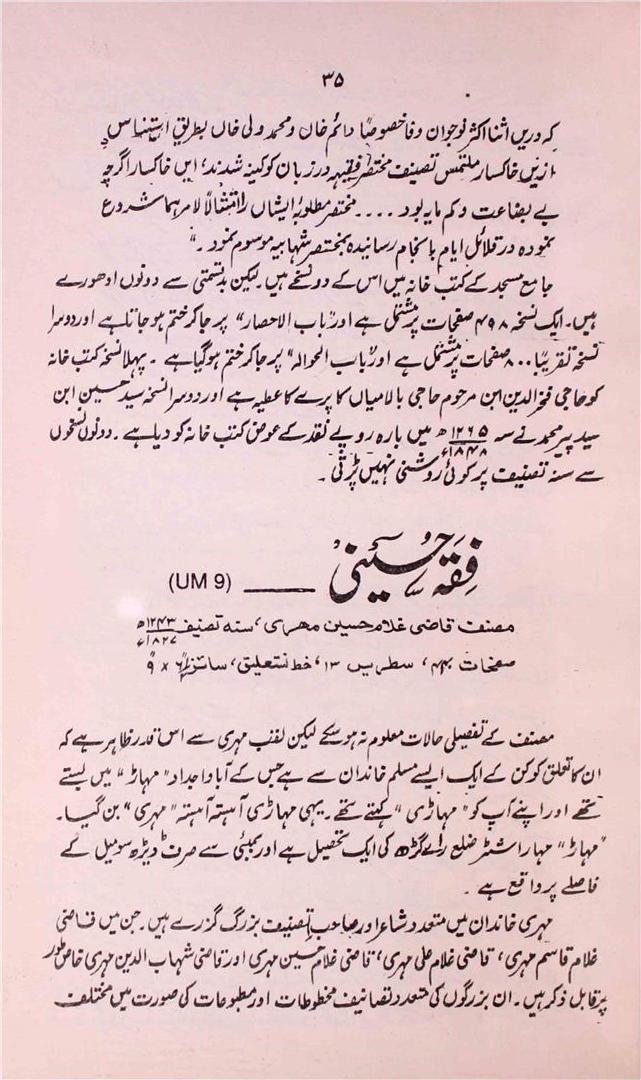 ۳۵
کہ دریں اثنا اکثر نوجوان وفا خصوصاً دائم خاں و محمد ولی خاں بطریقِ استیناس
ازیں خاکسار ملتمس تصنیف مختصر فقیہہ در زبان کوکنیہ شدند، ایں خاکسار اگرچہ
بے بضاعت و کم مایہ بود .... مختصر مطلوبۂ ایشاں را امتثالاً لامرہما شروع
نمودہ در قلائل ایام باانجام رسانیدہ بمختصر شہابیہ موسوم نمود ۔"
جامع مسجد کے کتب خانہ میں اس کے دو نسخے ہیں۔ لیکن بدقسمتی سے دونوں ادھورے
ہیں۔ ایک نسخہ ۴۹۸ صفحات پر مشتمل ہے اور "باب الاحصار" پر جاکر ختم ہو جاتا ہے اور دوسرا
نسخہ تقریباً ۸۰۰ صفحات پر مشتمل ہے اور "باب الحوالہ" پر جاکر ختم ہوگیا ہے ۔ پہلا نسخہ کتب خانہ
کو حاجی فخر الدین ابن مرحوم حاجی بالامیاں کاپرے کا عطیہ ہے اور دوسرا نسخہ سید حسین ابن
سید پیر محمد نے سنہ ۱۲۶۵ھ / ۱۸۴۸ء میں بارہ روپے نقد کے عوض کتب خانہ کو دیا ہے ۔ دونوں نسخوں
سے سنہ تصنیف پر کوئی روشنی نہیں پڑتی ۔
فِقہ حُسینی ــــــ (UM 9)
مصنف قاضی غلام حسین مہری، سنہ تصنیف ۱۲۴۳ھ / ۱۸۲۷ء
صفحات ۴۴۰، سطریں ۱۳، خط نستعلیق، سائز ۶ × ۹
مصنف کے تفصیلی حالات معلوم نہ ہوسکے لیکن لقب مہری سے اس قدر ظاہر ہے کہ
ان کا تعلق کوکن کے ایک ایسے مسلم خاندان سے ہے جس کے آبا و اجداد "مہاڑ" میں بستے
تھے اور اپنے آپ کو "مہاڑی" کہتے تھے۔ یہی مہاڑی آہستہ آہستہ "مہری" بن گیا۔
"مہاڑ" مہاراشٹر ضلع رائے گڑھ کی ایک تحصیل ہے اور بمبئی سے صرف ڈیڑھ سو میل کے
فاصلے پر واقع ہے ۔
مہری خاندان میں متعدد شاعر اور صاحبِ تصنیف بزرگ گزرے ہیں۔ جن میں قاضی
غلام قاسم مہری، قاضی غلام علی مہری، قاضی غلام حسین مہری اور قاضی شہاب الدین مہری خاص طور
پر قابل ذکر ہیں۔ ان بزرگوں کی متعدد تصانیف مخطوطات اور مطبوعات کی صورت میں مختلف